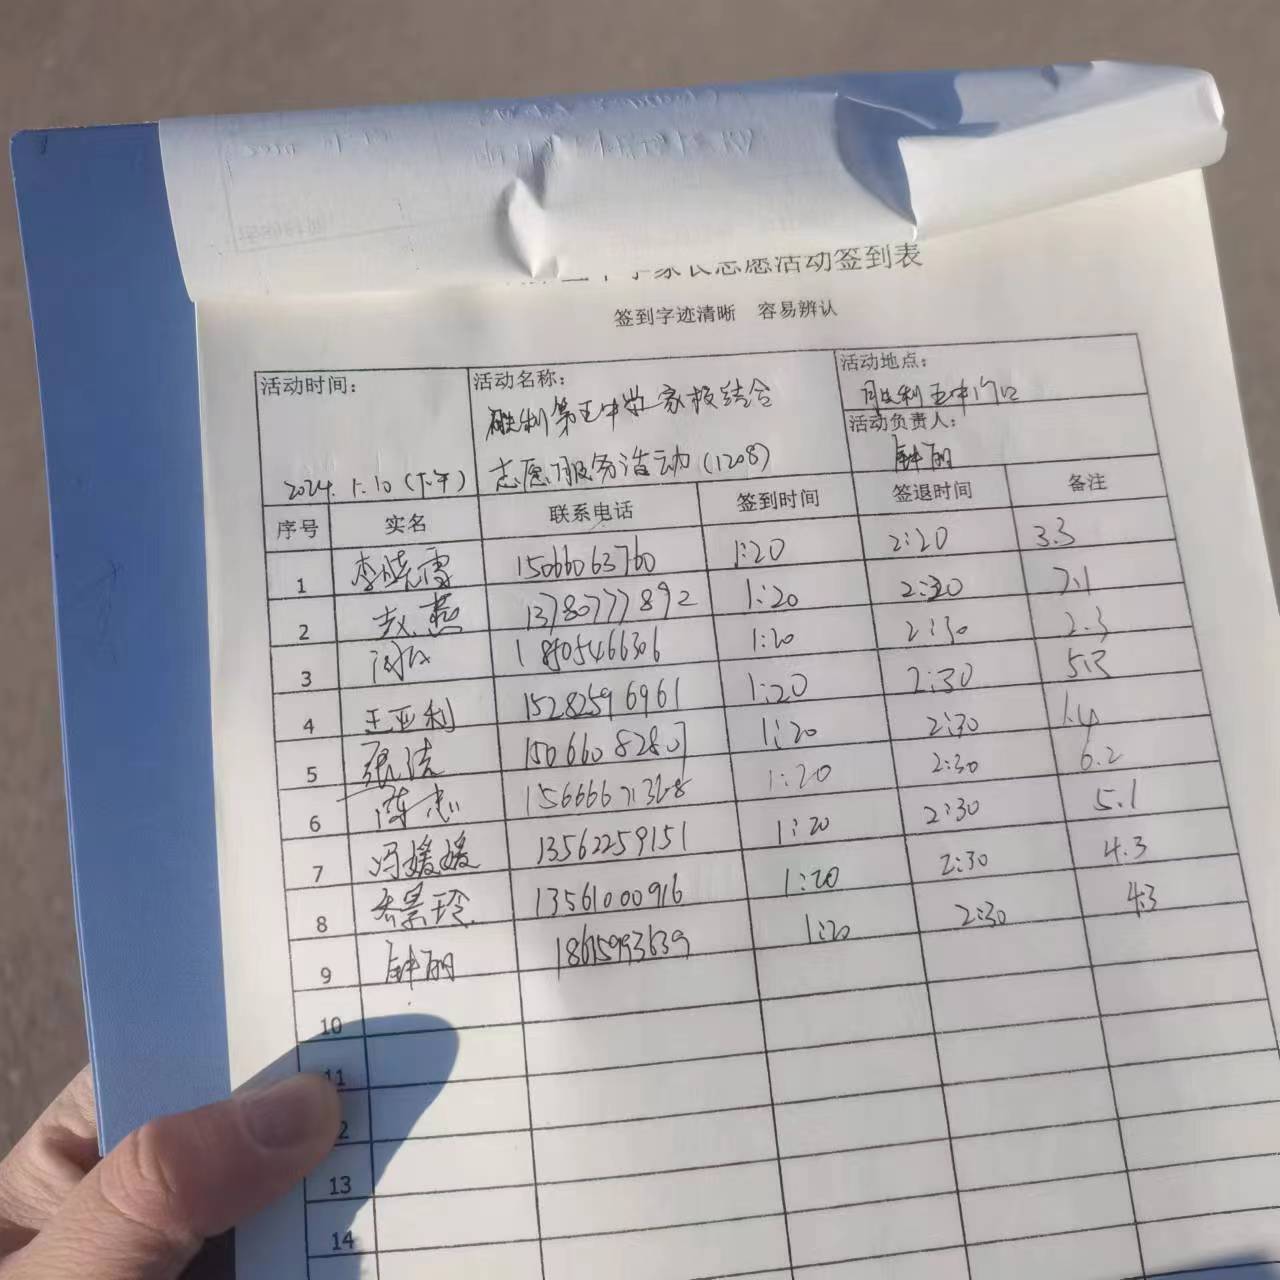 家长志愿活动签到表
签到字迹清晰 容易辨认
活动时间： 活动名称： 活动地点：
胜利第五中学家校结合 胜利五中门口
活动负责人：
2024.1.10(下午) 志愿服务活动(1208) 钟丽
序号 实名 联系电话 签到时间 签退时间 备注
1 李晓雪 15066063760 1:20 2:20 3.3
2 赵燕 13780777892 1:20 2:30 7.1
3 18505466306 1:20 2:30 2.3
4 王亚利 15282596961 1:20 2:30
5 张洁 1:20 2:30 1.4
6 陈志 1:20 2:30 6.2
7 冯媛媛 13562259151 1:20 2:30 5.1
8 景玲 13561000916 1:20 2:30 4.3
9 钟丽 18615993639 1:20 2:30 4.3
10
11
2
13
14